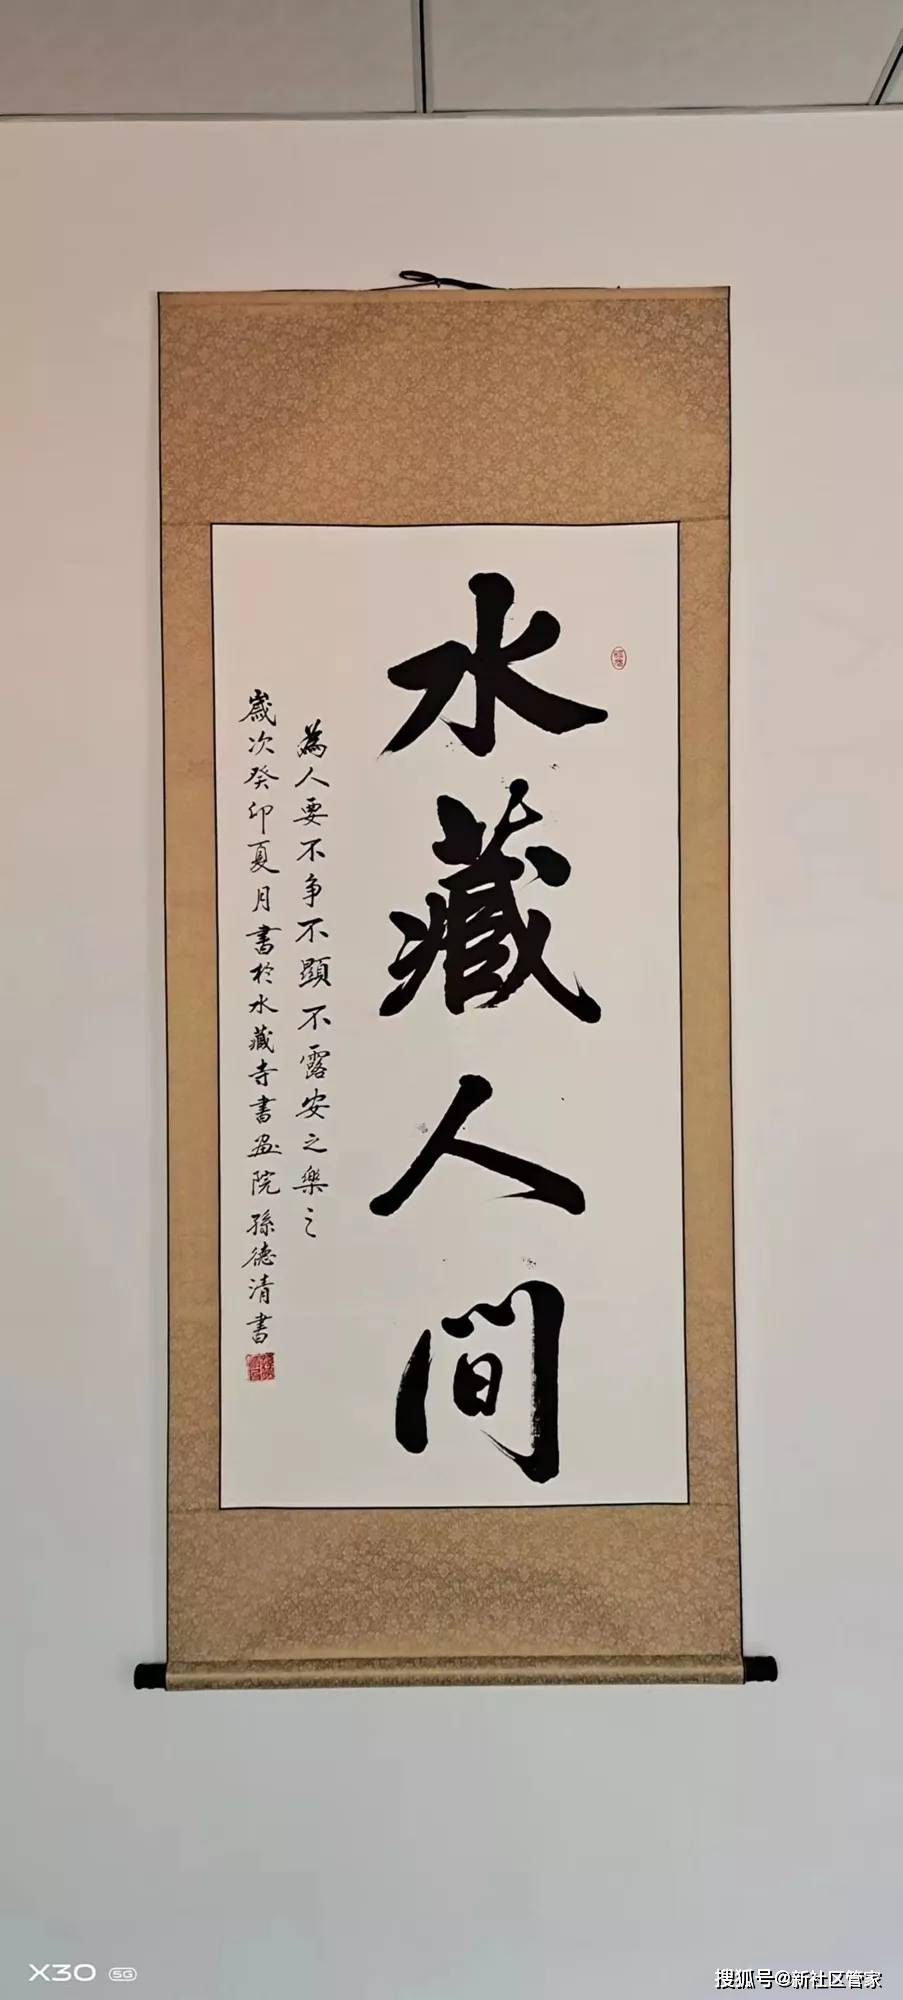 水藏人間
為人要不争不顯不露安之樂之
歲次癸卯夏月書於水藏寺書画院孫德清書
X30 5G
搜狐号@新社区管家